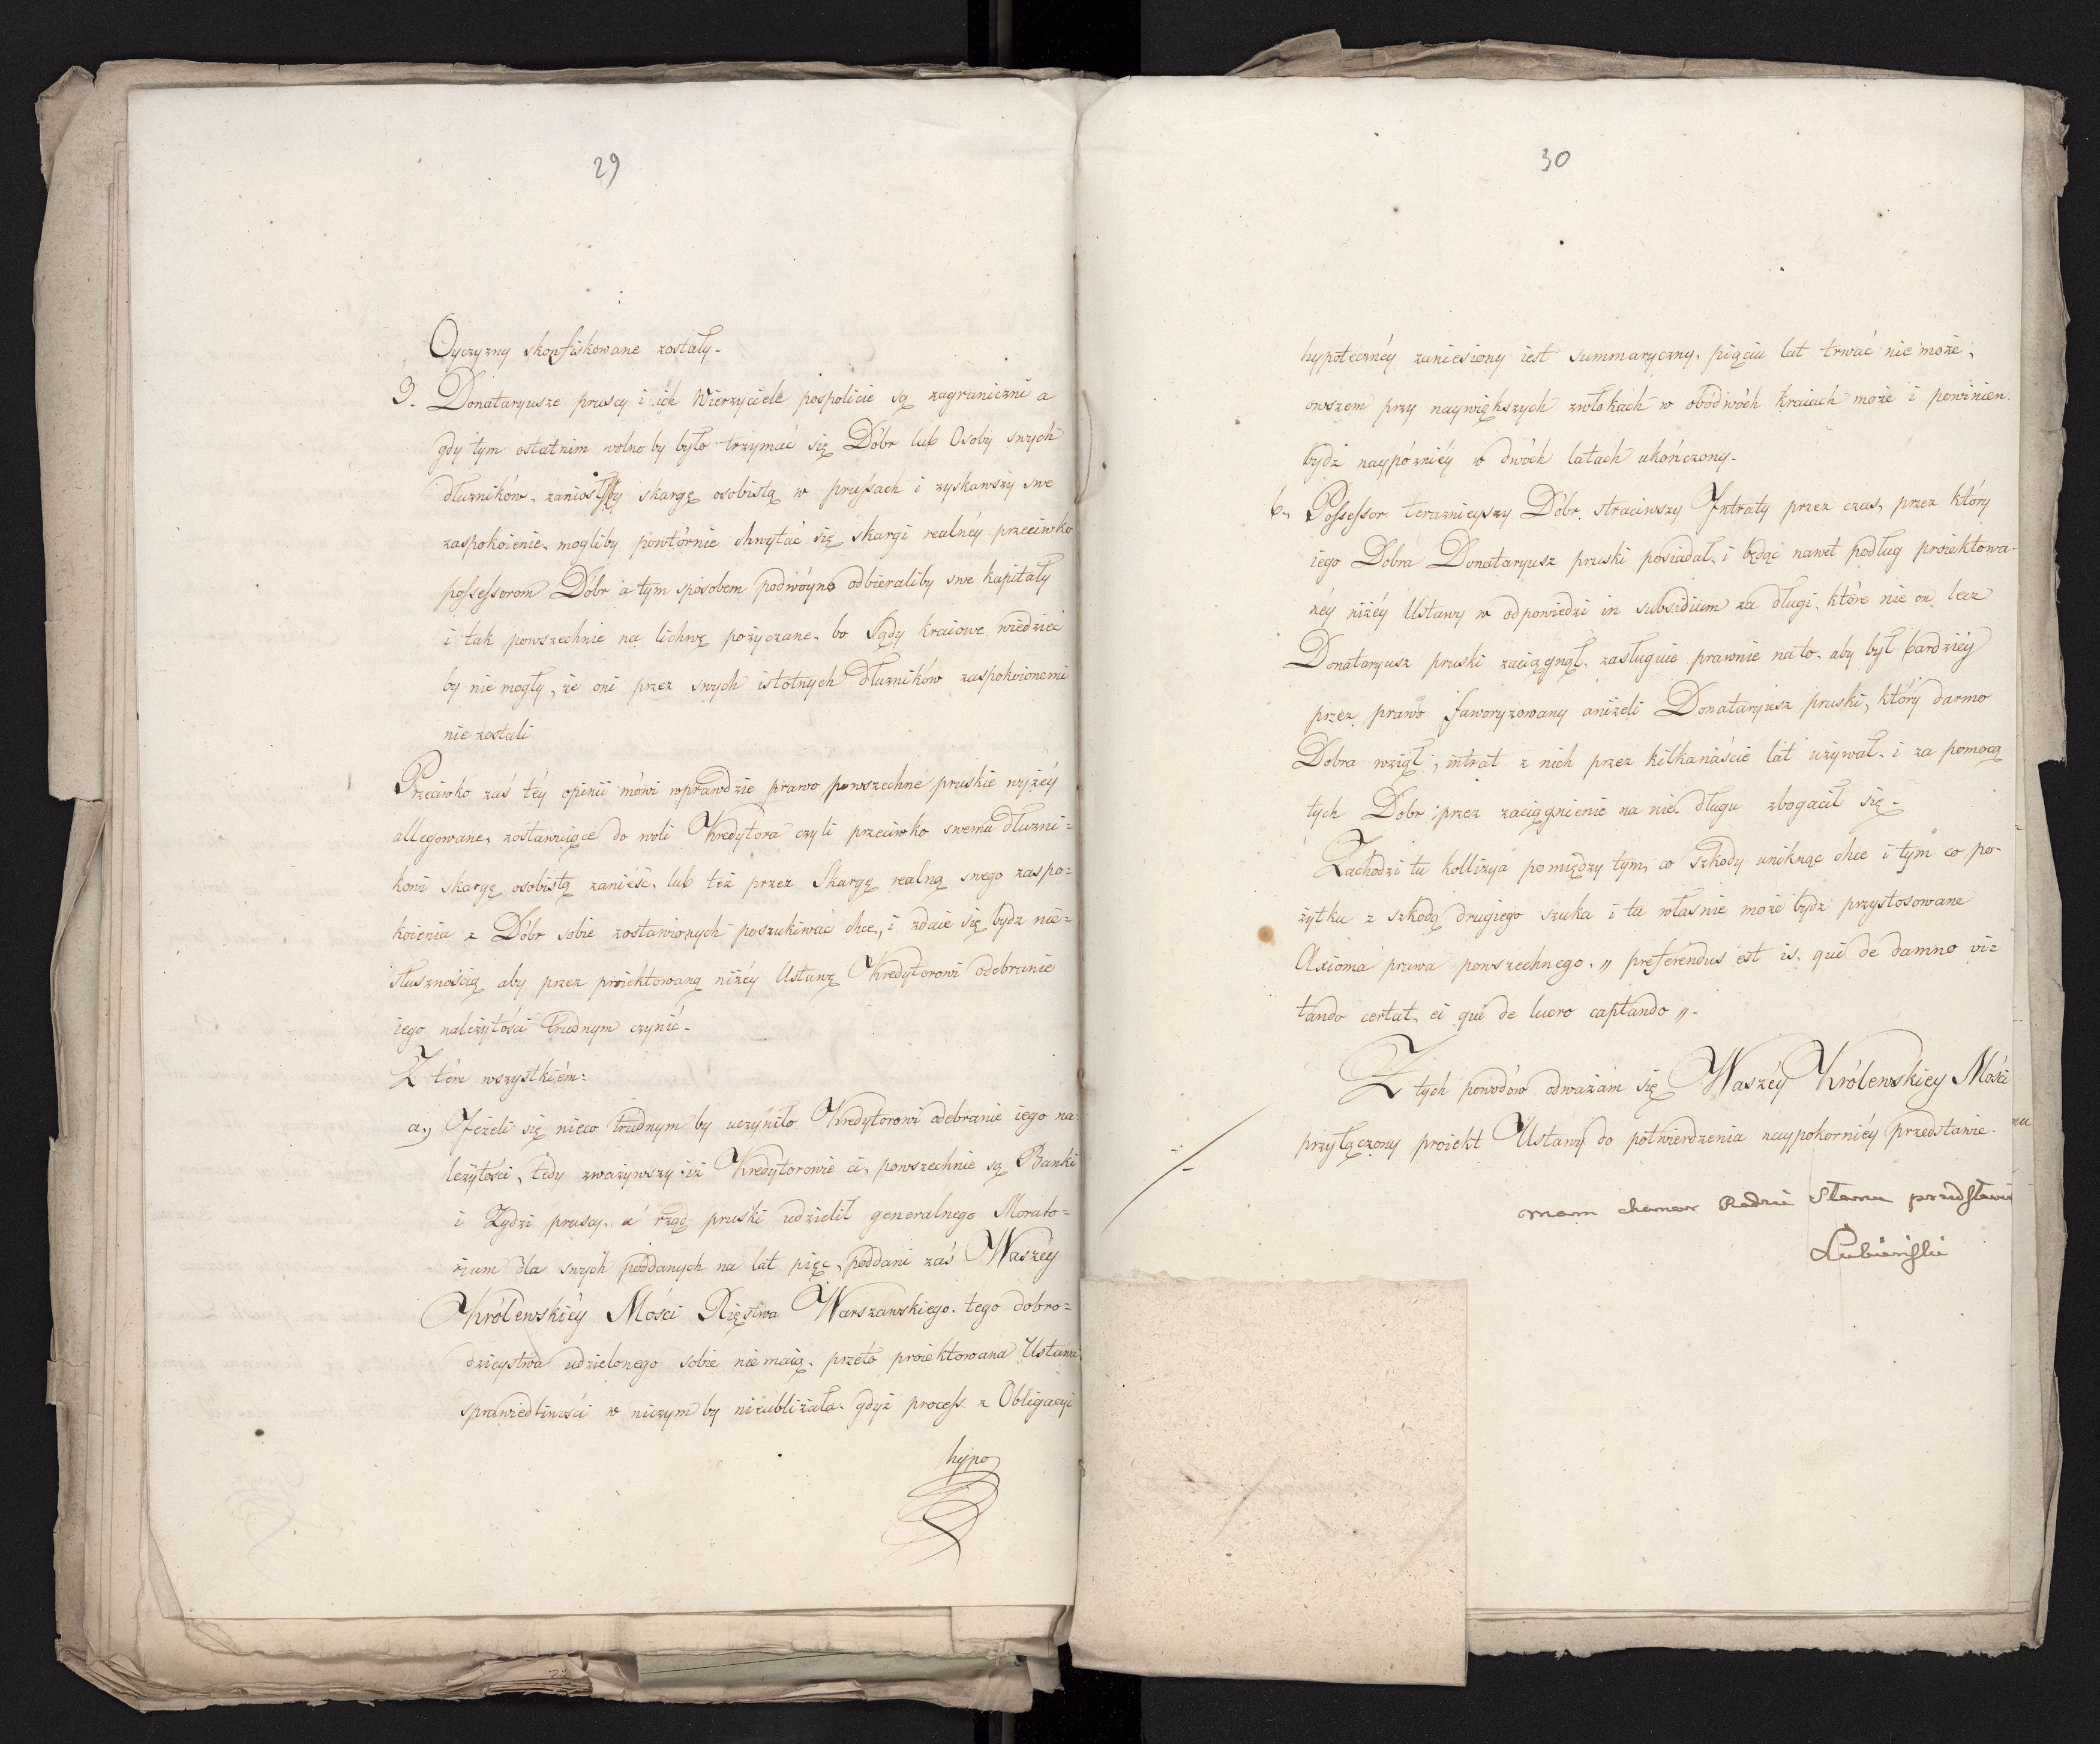 29
Oyczyzny skonfiskowane zostały.
3. Donataryusze pruscy i ich Wierzyciele pospolicie są zagraniczni a
gdy tym ostatnim wolno by było trzymać się Dóbr lub Osoby swych
dłużników, zaniosłby skargę osobistą w prussach i zyskawszy swe
zaspokoienie, mogliby powtórnie chwytać się skargi realnéy przeciwko
possessorom Dóbr a tym sposobem podwóyno odbieraliby swe kapitały
i tak powszechnie na lichwę pożyczane, bo Sądy kraiowe wiedzieć
by nie mogły, że oni przez swych istotnych Dłużników zaspokoionemi
nie zostali
Przeciwko zaś téy opinii mówi wprawdzie prawo powszechne pruskie wyżéy
allegowane, zostawuiące do woli Kredytora czyli przeciwko swemu dłużni=
kowi skargę osobistą zanieść, lub też przez Skargę realną swego zaspo=
koienia z Dóbr sobie zostawionych poszukiwać chce, i zdaie się bydz nie=
słusznością aby przez proiektowaną niżéy Ustawę Kredytorowi odebranie
iego należytości trudnym czynić.
Z tém wszystkiém:
a, Jeżeli się nieco trudnym by uczyniło Kredytorowi odebranie iego na=
leżytości, tedy zważywszy iż Kredytorowie ci, powszechnie są Banki
i Żydzi pruscy, a rząd pruski udzielił generalnego Morato=
rium dla swych poddanych na lat pięć, poddani zaś Waszéy
Królewskiéy Mości Xięstwa Warszawskiego tego dobro=
dzieystwa udzielonego sobie nie maią, przeto proiektowana Ustawa
sprawiedliwości w niczym by nieubliżała, gdyż process z Obligacyi
hypo
30
hypotecznéy zaniesiony iest summaryczny, pięciu lat trwać nie może,
owszem przy naywiększych zwłokach w obódwóch kraiach może i powinien
bydz naypózniéy w dwóch latach ukończony.
b, Possessor teraznieyszy Dóbr, straciwszy Intraty przez czas, przez który
iego Dobra Donataryusz pruski posiadał, i będąc nawet podług proiektowa-
néy niżéy Ustawy w odpowiedzi in subsidium za długi, które nie on lecz
Donataryusz pruski zaciągnął, zasługuie prawnie na to, aby był bardziéy
przez prawo faworyzowany aniżeli Donataryusz pruski, który darmo
Dobra wziął, intrat z nich przez kilkanaście lat używał, i za pomocą
tych Dobr przez zaciągnienie na nie długu zbogacił się.
Zachodzi tu kollizya pomiędzy tym, co szkody uniknąć chce i tym co po-
żytku z szkodą drugiego szuka i tu własnie może bydz przystosowane
Axioma prawa powszechnego „ preferendus est is, qui de damno vi=
tando certat, ei qui de lucro captando „.
Z tych powodów odważam się Waszéy Królewskiey Mości
przyłączony proiekt Ustawy do potwierdzenia naypokorniéy przedstawie.
mam honor Radzie Stanu przedstawić
Łubieński